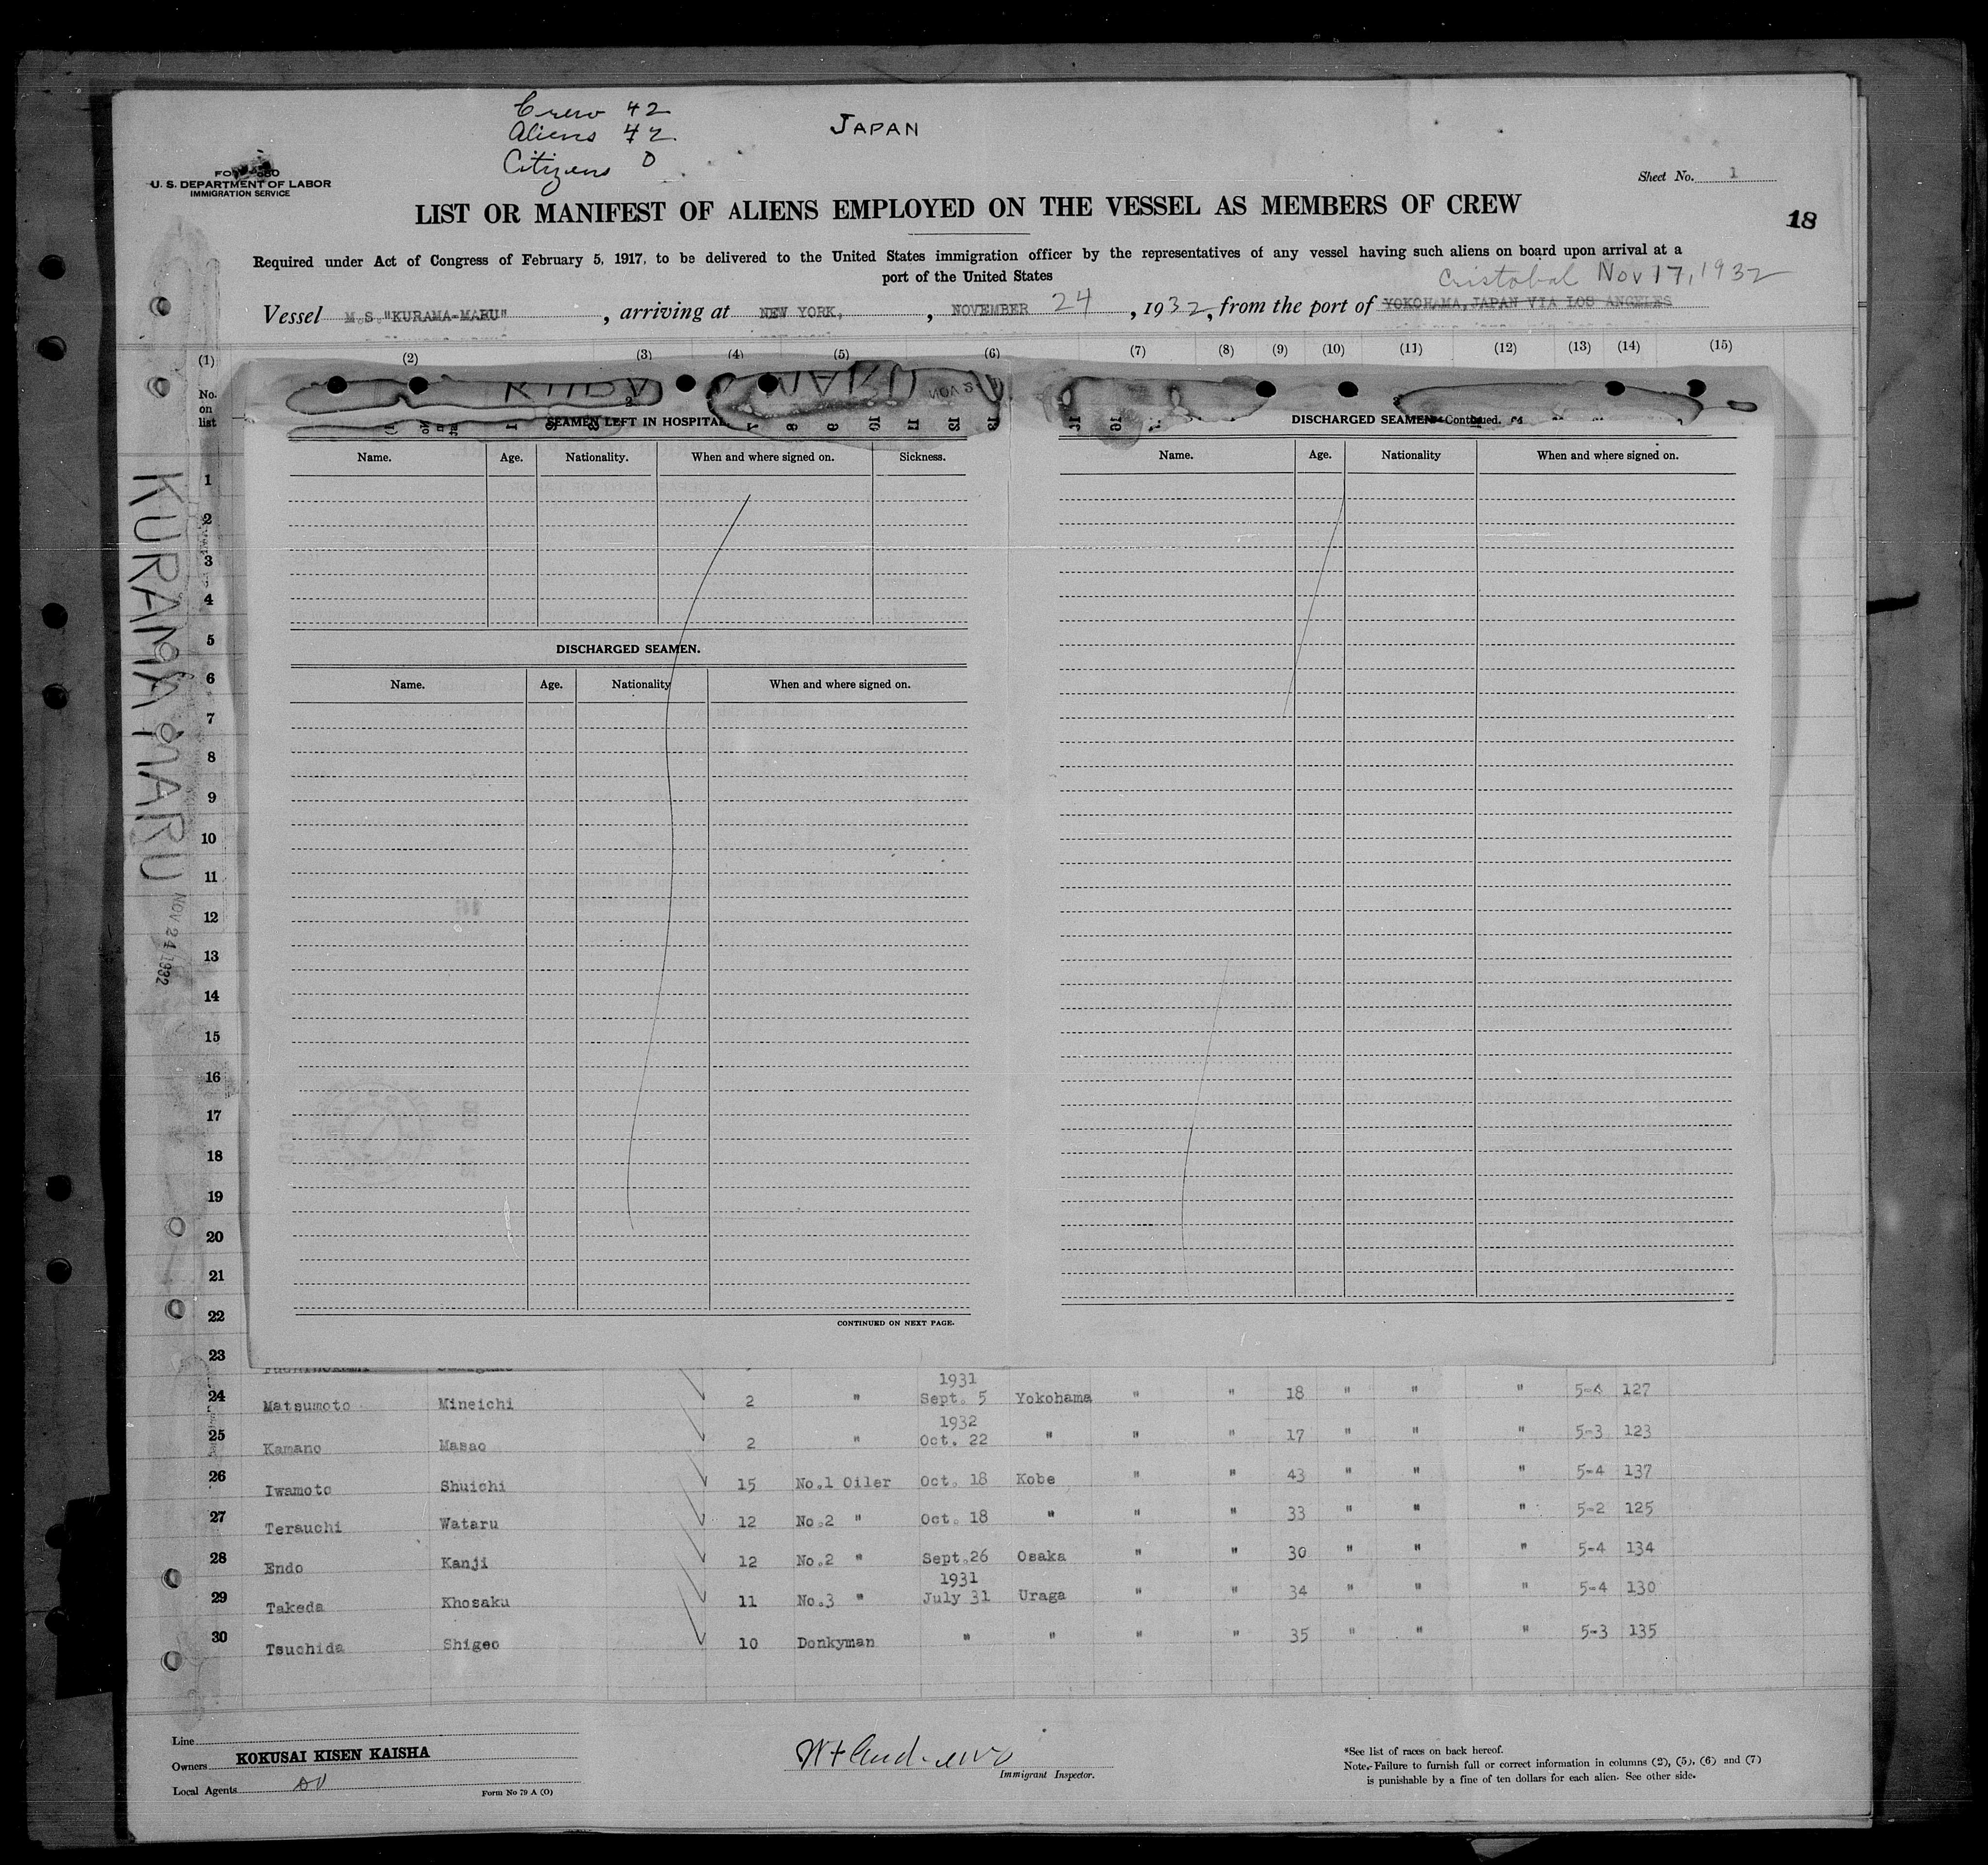 Crew 42
Aliens 42
Citizens 0
JAPAN
U. S. DEPARTMENT OF LABOR
IMMIGRATION SERVICE
Sheet No. 1
LIST OR MANIFEST OF ALIENS EMPLOYED ON THE VESSEL AS MEMBERS OF CREW
18
Required under Act of Congress of February 5, 1917, to be delivered to the United States immigration officer by the representatives of any vessel having such aliens on board upon arrival at a
port of the United States
Cristobal Nov 17, 1932
Vessel M.S."KURAMA-MARU", arriving at NEW YORK, , NOVEMBER 24, 1932, from the port of YOKOHAMA, JAPAN VIA LOS ANGELES
(1) (2) (3) (4) (5) (6) (7) (8) (9) (10) (11) (12) (13) (14) (15)
No. on list
KURAMA MARU
NOV 24 1932
SEAMEN LEFT IN HOSPITAL
Name. Age. Nationality. When and where signed on. Sickness.
DISCHARGED SEAMEN.
Name. Age. Nationality When and where signed on.
CONTINUED ON NEXT PAGE.
DISCHARGED SEAMEN Continued.
Name. Age. Nationality When and where signed on.
1
2
3
4
5
6
7
8
9
10
11
12
13
14
15
16
17
18
19
20
21
22
23
1931
24 Matsumoto Mineichi 2 " Sept. 5 Yokohama " " 18 " " " 5-4 127
1932
25 Kamano Masao 2 " Oct. 22 " " " 17 " " " 5-3 123
26 Iwamoto Shuichi 15 No.1 Oiler Oct. 18 Kobe " " 43 " " " 5-4 137
27 Terauchi Wataru 12 No.2 " Oct. 18 " " " 33 " " " 5-2 125
28 Endo Kanji 12 No.2 " Sept.26 Osaka " " 30 " " " 5-4 134
1931
29 Takeda Khosaku 11 No.3 " July 31 Uraga " " 34 " " " 5-4 130
30 Tsuchida Shigeo 10 Donkyman " " " " 35 " " " 5-3 135
Line
Owners KOKUSAI KISEN KAISHA
Local Agents
Form No 79 A (O)
Immigrant Inspector.
*See list of races on back hereof.
Note.-Failure to furnish full or correct information in columns (2), (5), (6) and (7)
is punishable by a fine of ten dollars for each alien. See other side.